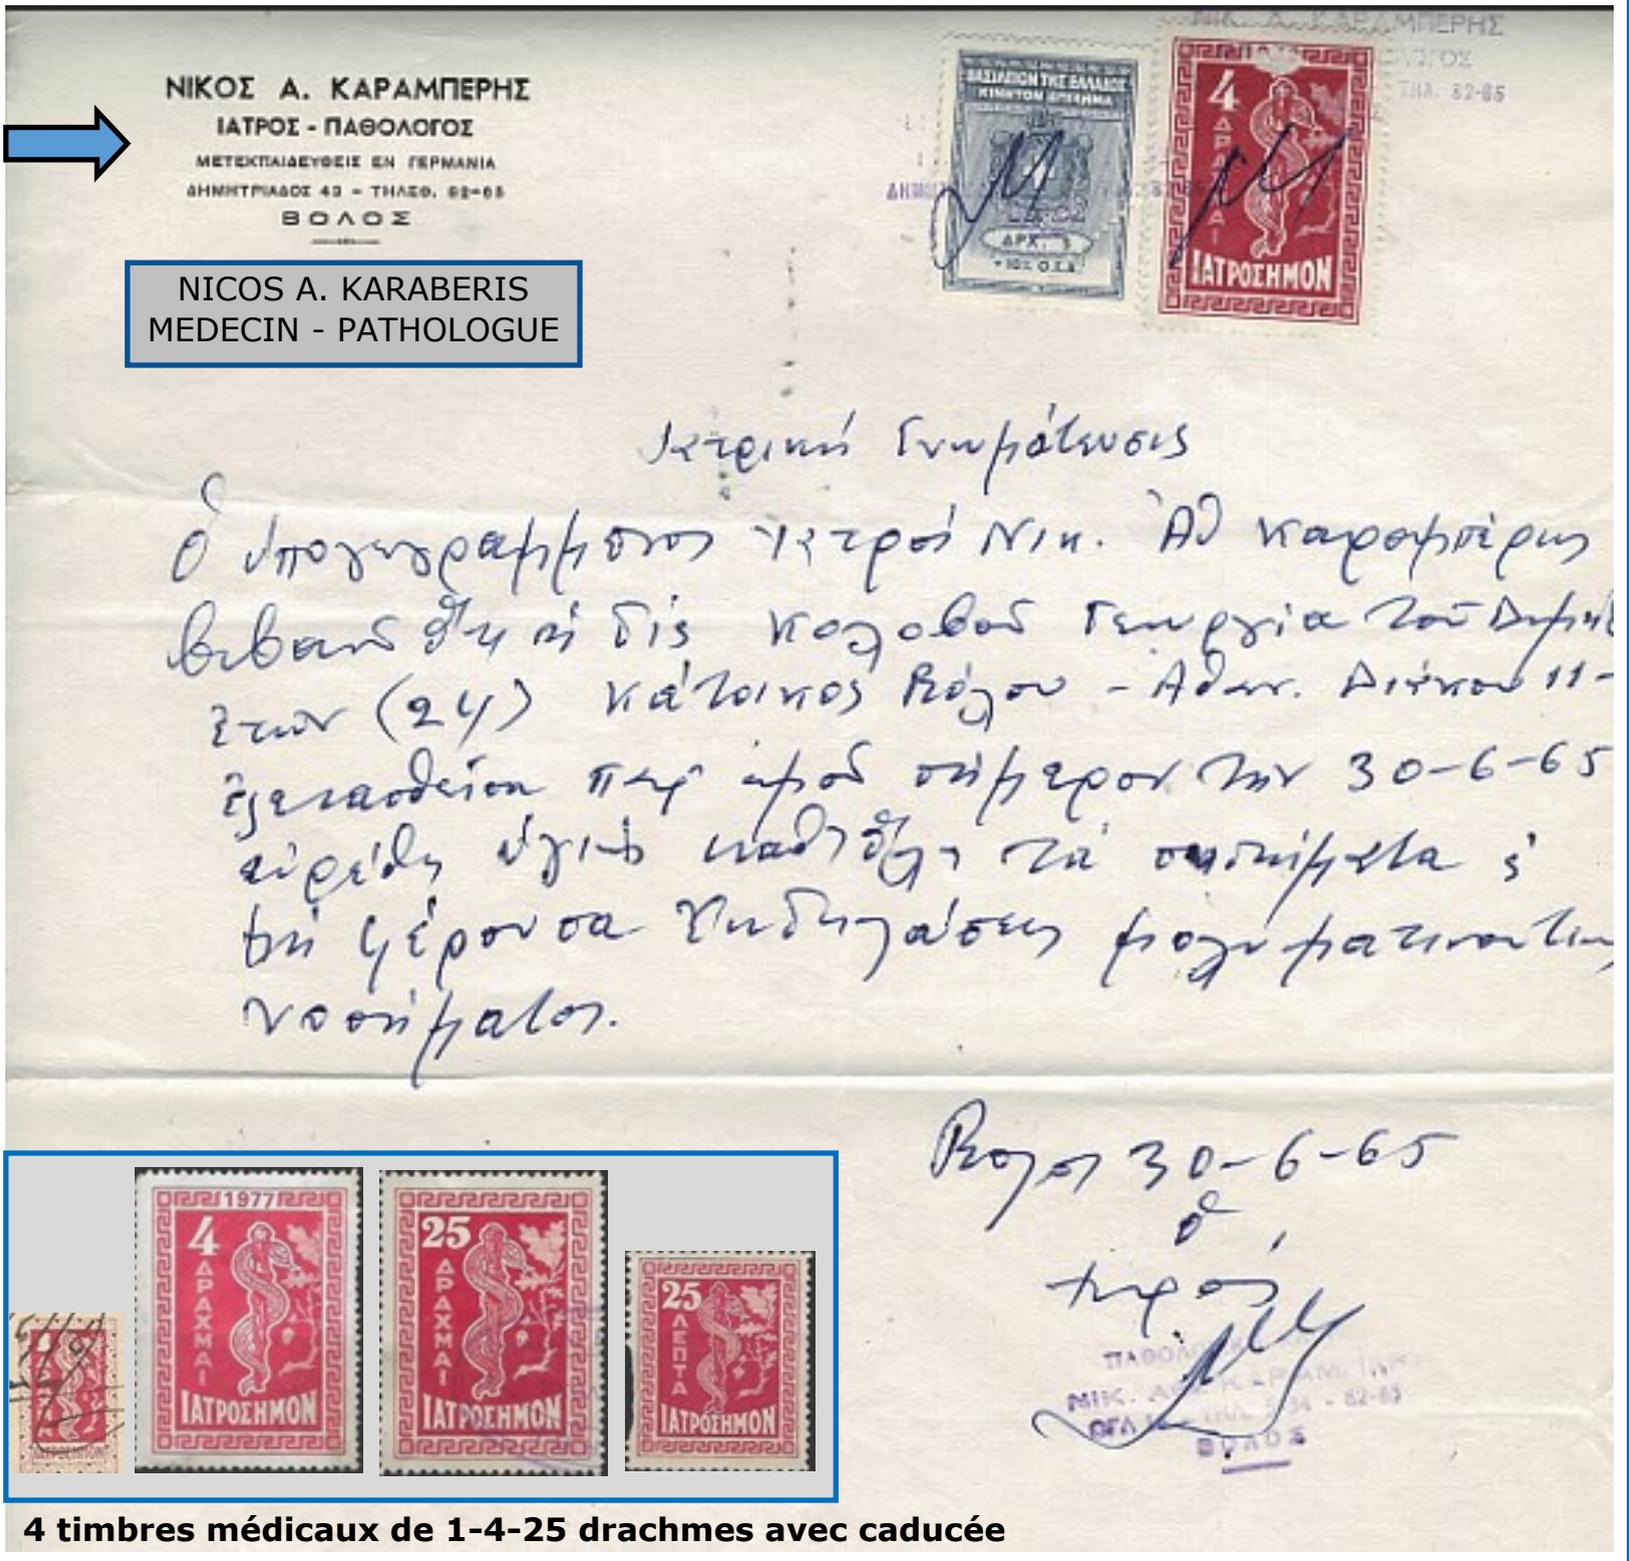 ΝΙΚΟΣ Α. ΚΑΡΑΜΠΕΡΗΣ
ΙΑΤΡΟΣ - ΠΑΘΟΛΟΓΟΣ
ΜΕΤΕΚΠΑΙΔΕΥΘΕΙΣ ΕΝ ΓΕΡΜΑΝΙΑ
ΔΗΜΗΤΡΙΑΔΟΣ 43 - ΤΗΛΕΦ. 82-65
ΒΟΛΟΣ
NICOS A. KARABERIS
MEDECIN - PATHOLOGUE
ΒΑΣΙΛΕΙΟΝ ΤΗΣ ΕΛΛΑΔΟΣ
ΚΙΝΗΤΟΝ ΕΠΙΣΗΜΑ
ΔΡΧ.
4
ΔΡΑΧΜΑΙ
ΙΑΤΡΟΣΗΜΟΝ
ΚΑΡΑΜΠΕΡΗΣ
ΤΗΛ. 82-65
Ἰατρική Γνωμάτευσις
Ὁ ὑπογεγραμμένος Ἰατρός Νικ. Ἀθ Καραμπέρης
βεβαιῶ ὅτι ἡ δὶς Γεωργία τοῦ
ἐτῶν (24) κάτοικος Βόλου - Ἀθαν. Διάκου 11-
ἐξετασθεῖσα παρ' ἐμοῦ σήμερον τὴν 30-6-65
εὑρέθη ὑγιὴς καθ' ὅλα τὰ συστήματα
μὴ φέρουσα ἐκδηλώσεις
νοσήματος.
Βόλος 30-6-65
ὁ
ἰατρός
ΝΙΚ.
82-65
ΒΟΛΟΣ
1977
4
ΔΡΑΧΜΑΙ
ΙΑΤΡΟΣΗΜΟΝ
25
ΔΡΑΧΜΑΙ
ΙΑΤΡΟΣΗΜΟΝ
25
ΛΕΠΤΑ
ΙΑΤΡΟΣΗΜΟΝ
ΙΑΤΡΟΣΗΜΟΝ
4 timbres médicaux de 1-4-25 drachmes avec caducée